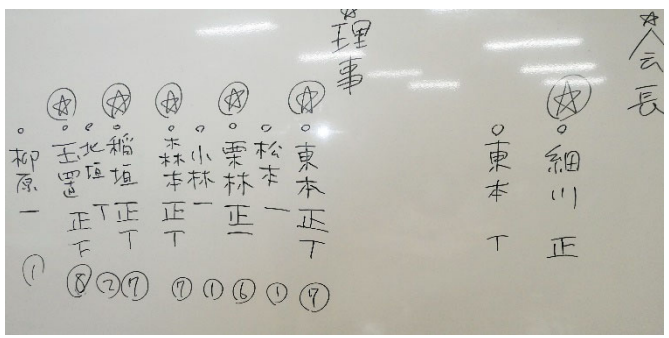 ☆会長
☆○細川 正
○東本 丅
☆理事
☆○東本 正丅 ⑦
○松本 一 ①
☆○栗林 正一 ⑥
○小林 一 ①
☆○森本 正丅 ⑦
☆○稲垣 正丅 ⑦
○北垣 丅 ②
☆○玉置 正下 ⑧
○柳原 一 ①